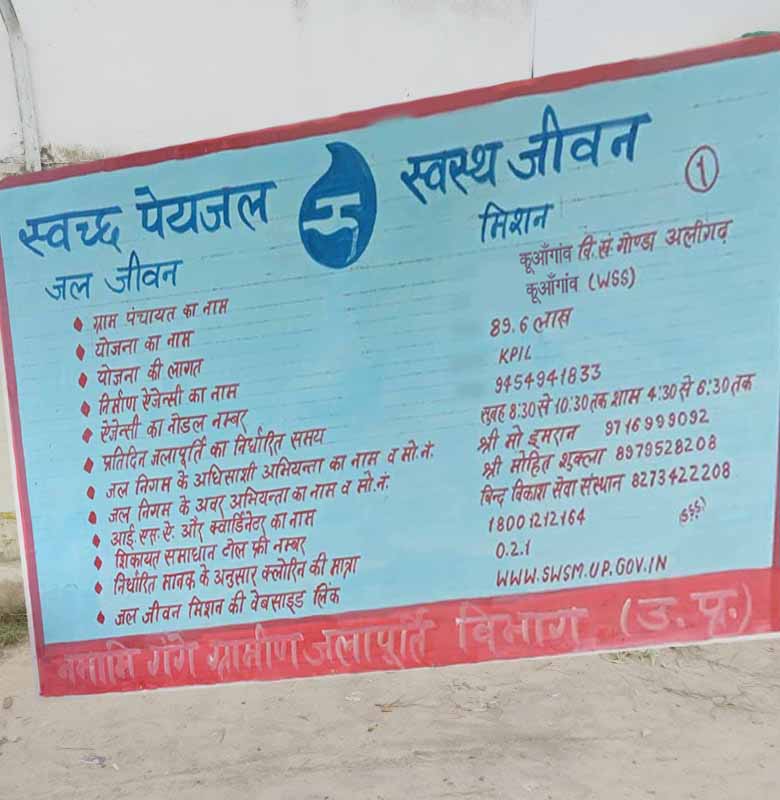 स्वच्छ पेयजल स्वस्थ जीवन
जल जीवन मिशन
1
ग्राम पंचायत का नाम कूआँगांव वि.सं. गोण्डा अलीगढ़
योजना का नाम कूआँगांव (WSS)
योजना की लागत 89.6 लाख
निर्माण ऐजेन्सी का नाम KPIL
ऐजेन्सी का नोडल नम्बर 9454941833
प्रतिदित जलापूर्ति का निर्धारित समय सुबह 8:30 से 10:30 तक शाम 4:30 से 6:30 तक
जल निगम के अधिसाशी अभियन्ता का नाम व मो.नं. श्री मो इमरान 9716999092
जल निगम के अवर अभियन्ता का नाम व मो.नं. श्री मोहित शुक्ला 8979528208
आई.एस.ऐ. और क्वार्डिनेटर का नाम विन्द विकाश सेवा संस्थान 8273422208
शिकायत समाधान टोल फ्री नम्बर 18001212164
निर्धारित मानक के अनुसार क्लोरिन की मात्रा 0.2.1
जल जीवन मिशन की वेबसाइड लिंक WWW.SWSM.UP.GOV.IN
नमामि गंगे ग्रामीण जलापूर्ति विभाग (उ.प्र.)